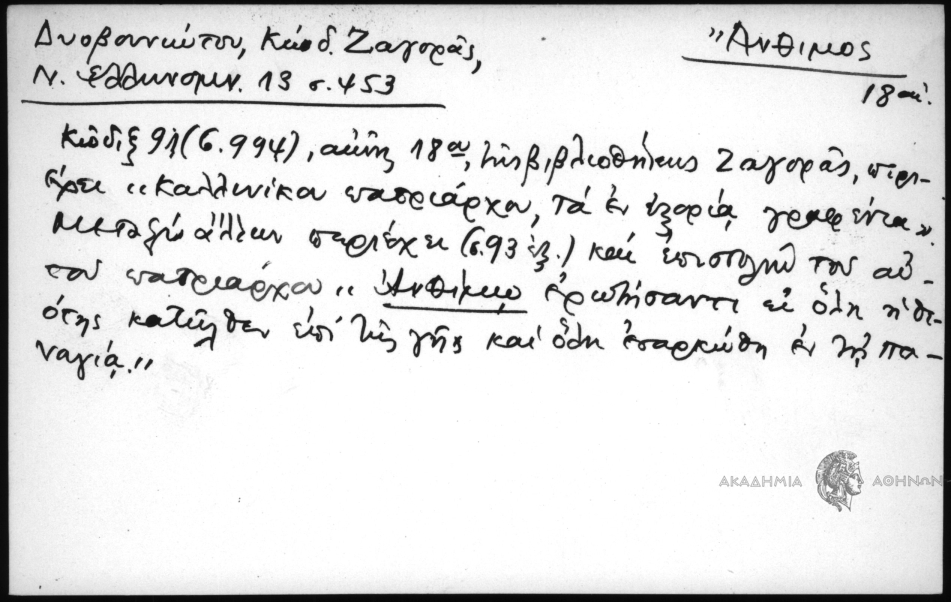 Δυοβουνιώτου, Κώδ. Ζαγορᾶς,
Ν. Ἑλληνομν. 13 σ. 453
Ἄνθιμος
18 αἰ.
Κῶδιξ 91 (σ. 994), ἀκμῆς 18 αι, τῆς βιβλιοθήκης Ζαγορᾶς, περι-
έχει "Καλλινίκου πατριάρχου, τά ἐν ἐξορίᾳ γραφέντα".
Μεταξύ ἄλλων περιέχει (σ. 93 ἑξ.) καί ἐπιστολήν τοῦ αὐ-
τοῦ πατριάρχου "Ἀνθίμῳ ἐρωτήσαντι εἰ ὅλη ἡ θε-
ότης κατῆλθεν ἐπί τῆς γῆς καί ὅλη ἐσαρκώθη ἐν τῇ πα-
ναγίᾳ."
ΑΚΑΔΗΜΙΑ ΑΘΗΝΩΝ